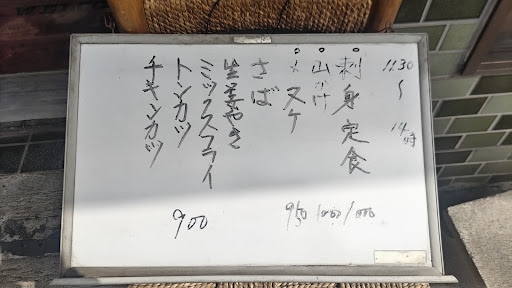 11:30 〜 14時
刺身定食 1000
山かけ 1000
メヌケ 950
さば
生姜やき
ミックスフライ 900
トンカツ
チキンカツ